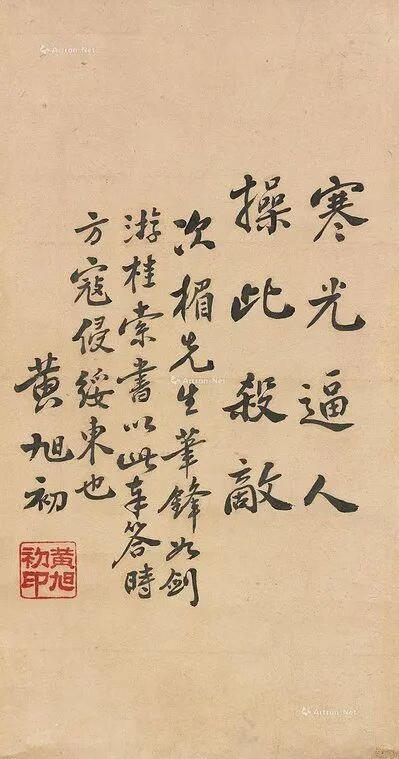 寒光逼人
操此殺敵
次楣先生筆鋒如劍
游桂索書以此奉答時
方寇侵綏東也
黃旭初
黃旭初印
Artron.Net
Artron.Net
Artron.Net
Artron.Net